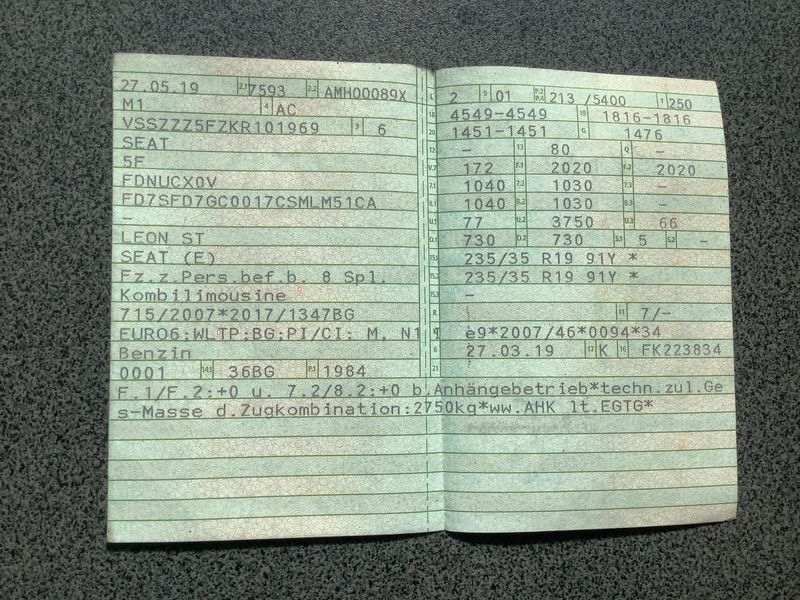 27.05.19 2.1 7593 2.2 AMH00089X
M1 4 AC
VSSZZZ5FZKR101969 3 6
SEAT
5F
FDNUCX0V
FD7SFD7GC0017CSMLM51CA
–
LEON ST
SEAT (E)
Fz.z.Pers.bef.b. 8 Spl.
Kombilimousine
715/2007*2017/1347BG
EURO6;WLTP;BG;PI/CI; M, N1 I
Benzin
0001 14.1 36BG P.1 1984
L 2 9 01 P.2 P.4 213 /5400 T 250
18 4549-4549 19 1816-1816
20 1451-1451 G 1476
12 – 13 80 Q –
V.7 172 F.1 2020 F.2 2020
7.1 1040 7.2 1030 7.3 –
8.1 1040 8.2 1030 8.3 –
U.1 77 U.2 3750 U.3 66
O.1 730 O.2 730 S.1 5 S.2 –
15.1 235/35 R19 91Y *
15.2 235/35 R19 91Y *
15.3 –
R 11 7/-
K e9*2007/46*0094*34
6 27.03.19 17 K 16 FK223834
21
F.1/F.2:+0 u. 7.2/8.2:+0 b.Anhängebetrieb*techn.zul.Ge
s-Masse d.Zugkombination:2750kg*ww.AHK lt.EGTG*